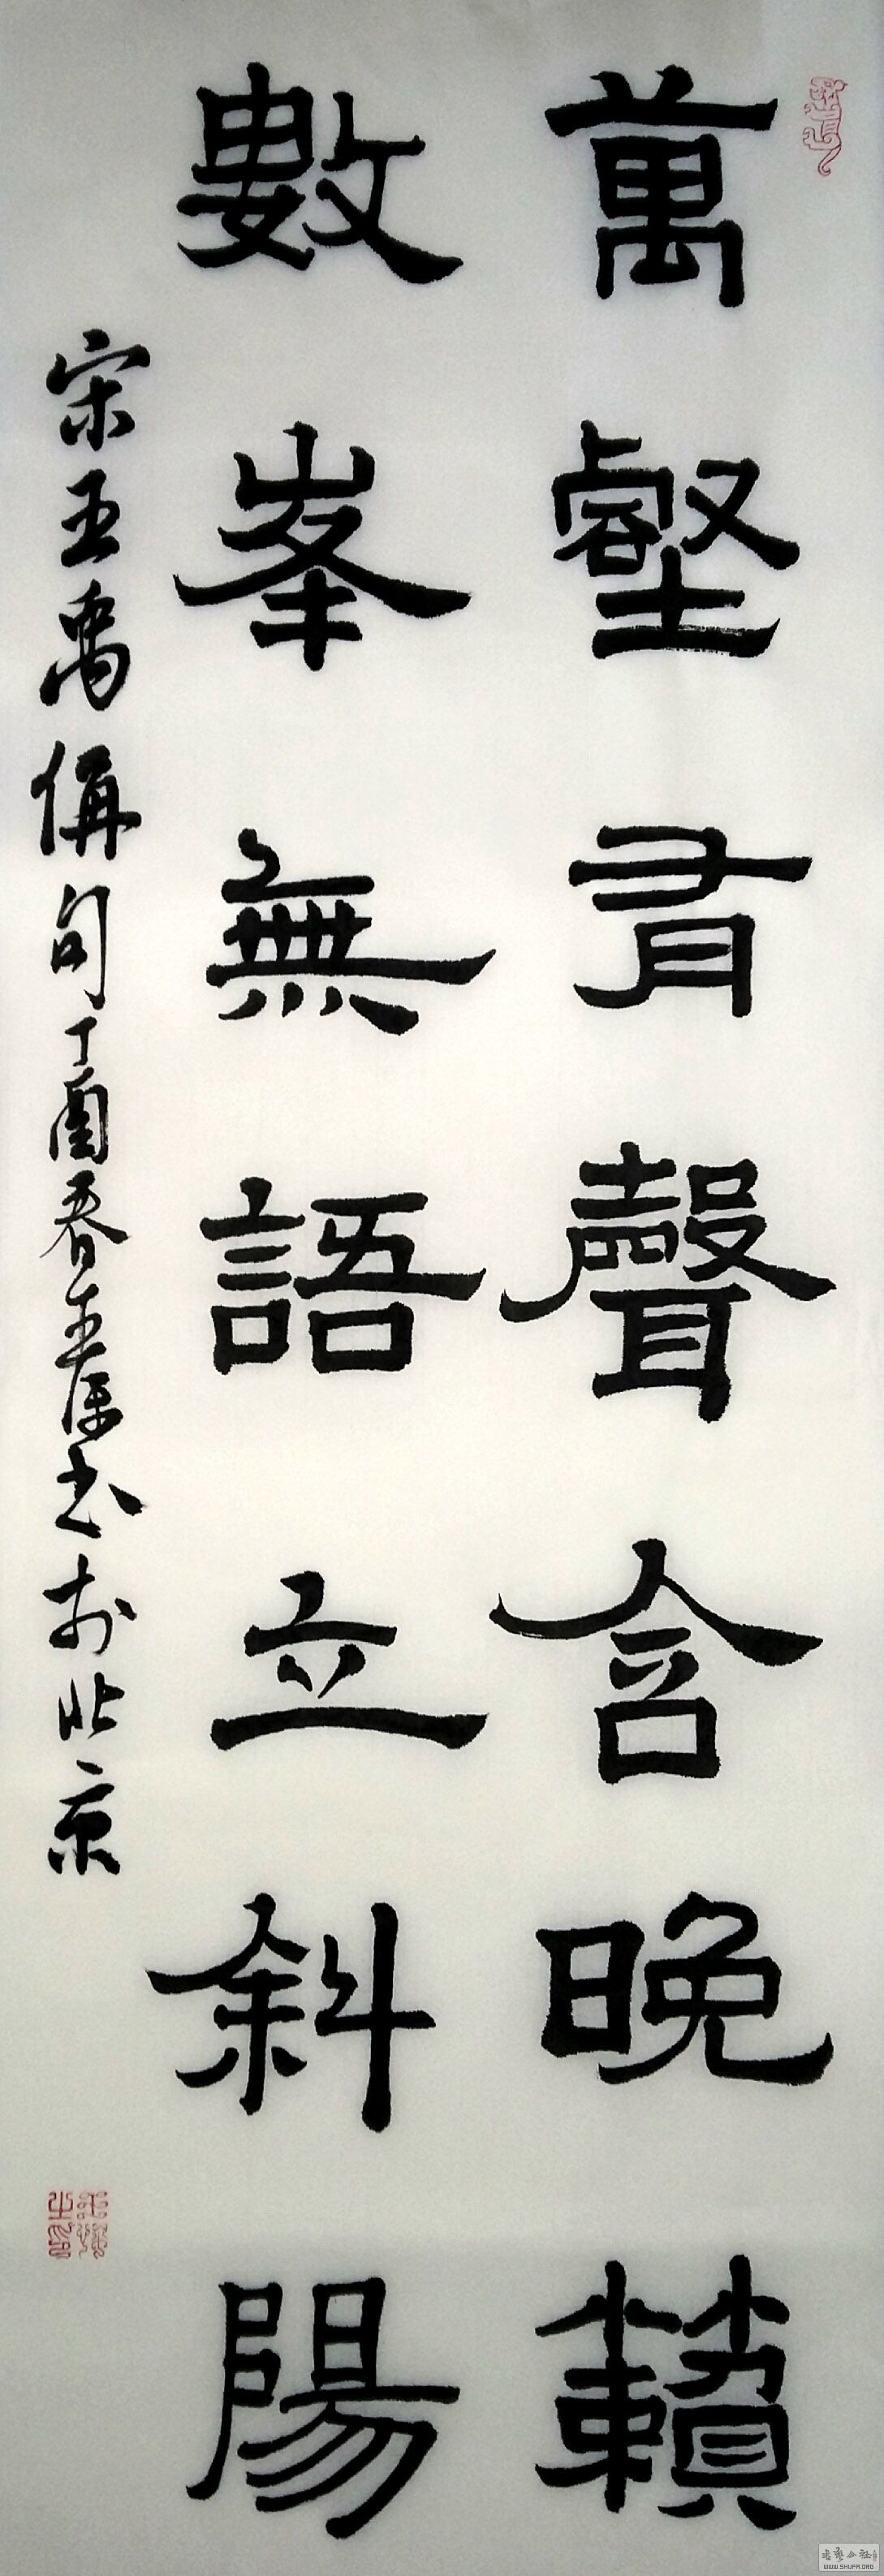 萬壑有聲含晚籟
數峯無語立斜陽
宋王禹偁句丁酉春王康书於北京
WWW.SHUFA.ORG